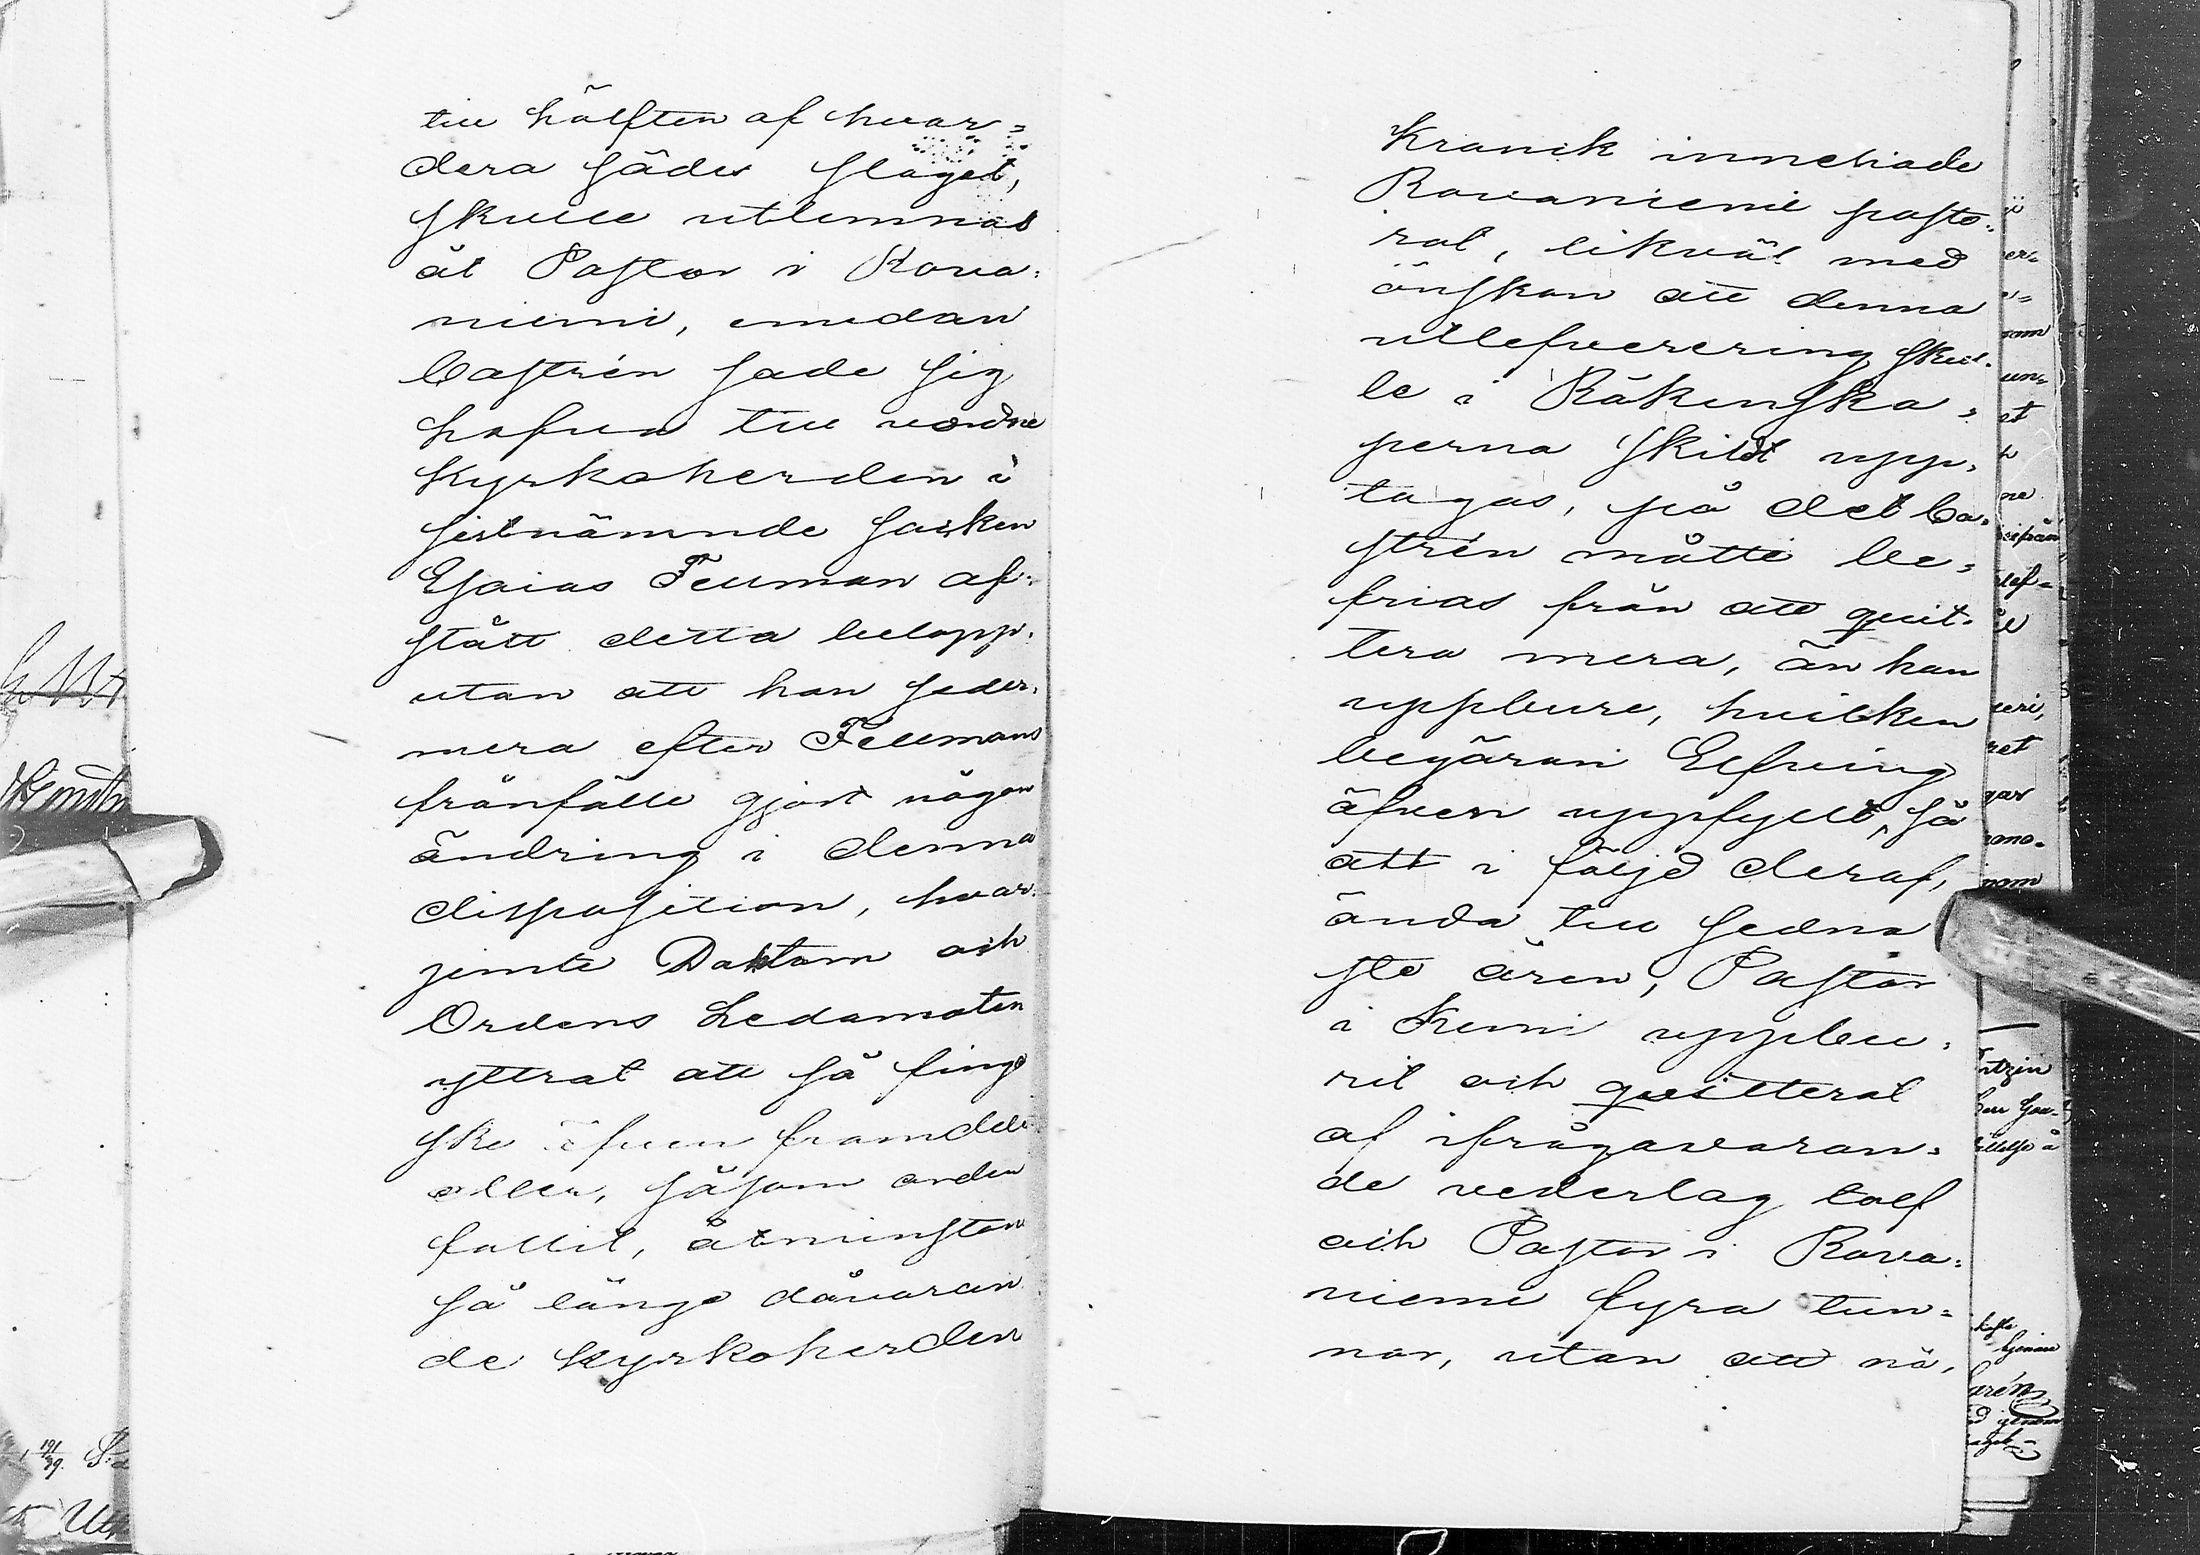 till hälften af hvar=
dera sädes slaget,
skulle utlemnas
åt Pastor i Rova=
niemi, emedan
Castrén sade sig
hafva till vordne
Kyrkoherden i
sistnämnde socken
Esaias Fellman af=
stått detta belopp,
utan att han seder=
mera efter Fellmans
frånfälle gjort någon
ändring i denna
disposition, hvar=
jemte Doktorn och
Ordens Ledamoten
yttrat att så finge
ske äfven framdeles
eller, såsom orden
fallit, åtminstone
så länge dåvaran=
de Kyrkoherden
Kranck innehade
Rovaniemi pasto=
rat, likväl med
önskan att denna
utlefverering skul=
le i Räkenska=
perna skildt upp=
tagas, på det Ca=
strén måtte be=
frias från att quit=
tera mera, än han
uppbure, hvilken
begäran Elfving
äfven uppfyllt, så
att i följd deraf,
ända till sedna
ste åren, Pastor
i Kemi uppbu=
rit och quitterat
af ifrågavaran=
de vederlag tolf
och Pastor i Rova=
niemi fyra tun=
nor, utan att nå=